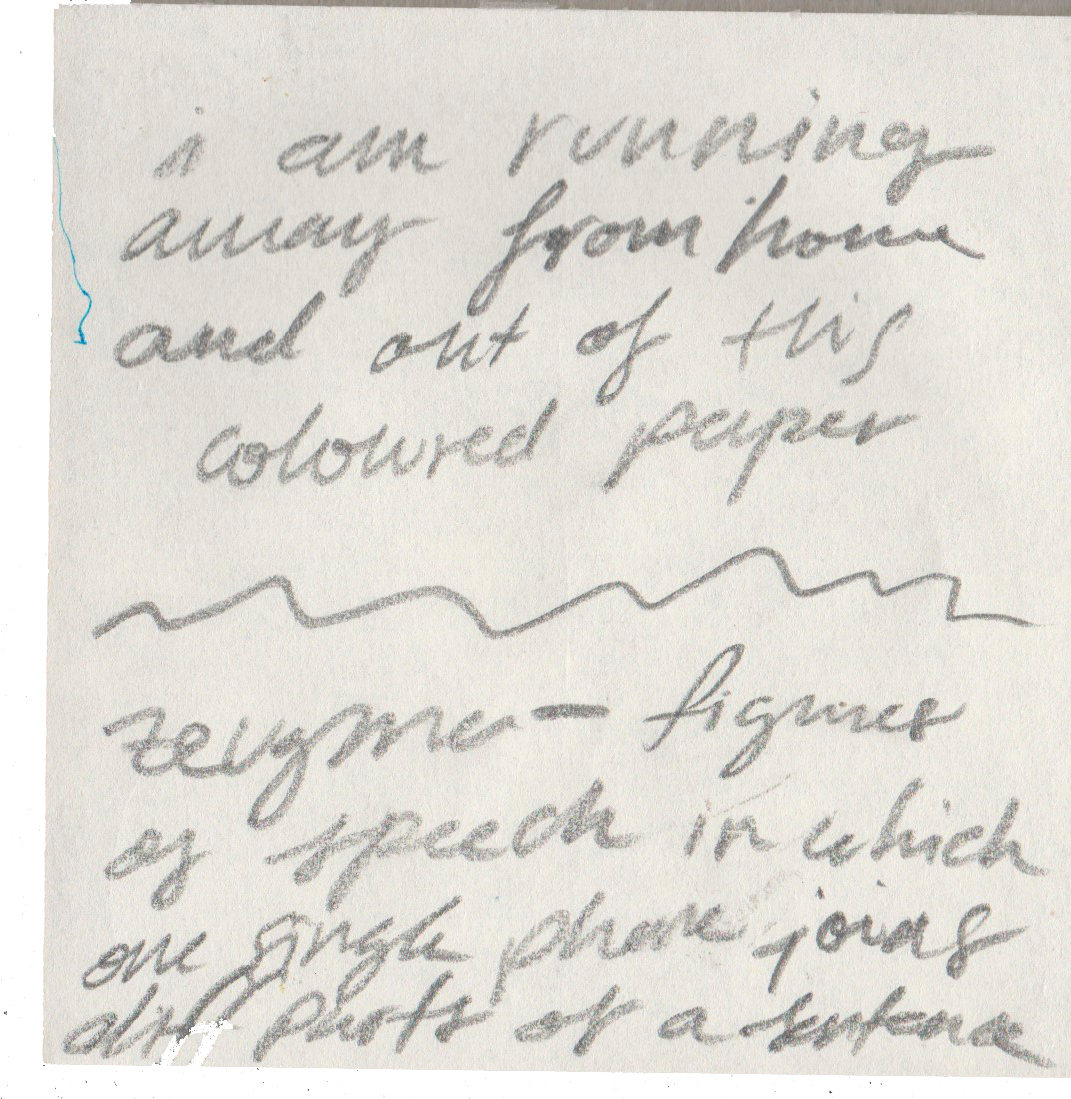 i am running
away from home
and out of this
coloured paper
zeugma — figures
of speech in which
one single phrase joins
diff parts of a sentence